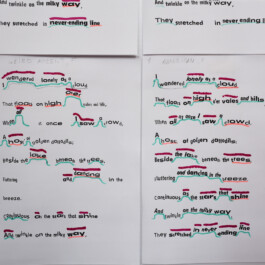 And twinkle on the milky way,
They stretched in never-ending line
And twinkle on the milky way,
They stretched in never-ending line
I wandered lonely as a
cloud
That floats on high o'er
vales and hills,
When
a
once
I saw
a crowd,
A host
of golden daffodils;
Beside the
lake
beneath the trees,
Fluttering
and dancing
in the
breeze.
Continuous as the stars that shine
And twinkle on the milky way,
I wandered lonely as a
cloud
That floats on high o'er vales and hills
When all at once I saw a crowd,
A host of golden daffodils;
Beside the lake beneath the trees
Fluttering and dancing in the
breeze.
Continuous as the stars that shine
And twinkle on the milky way
They stretched in never-ending line